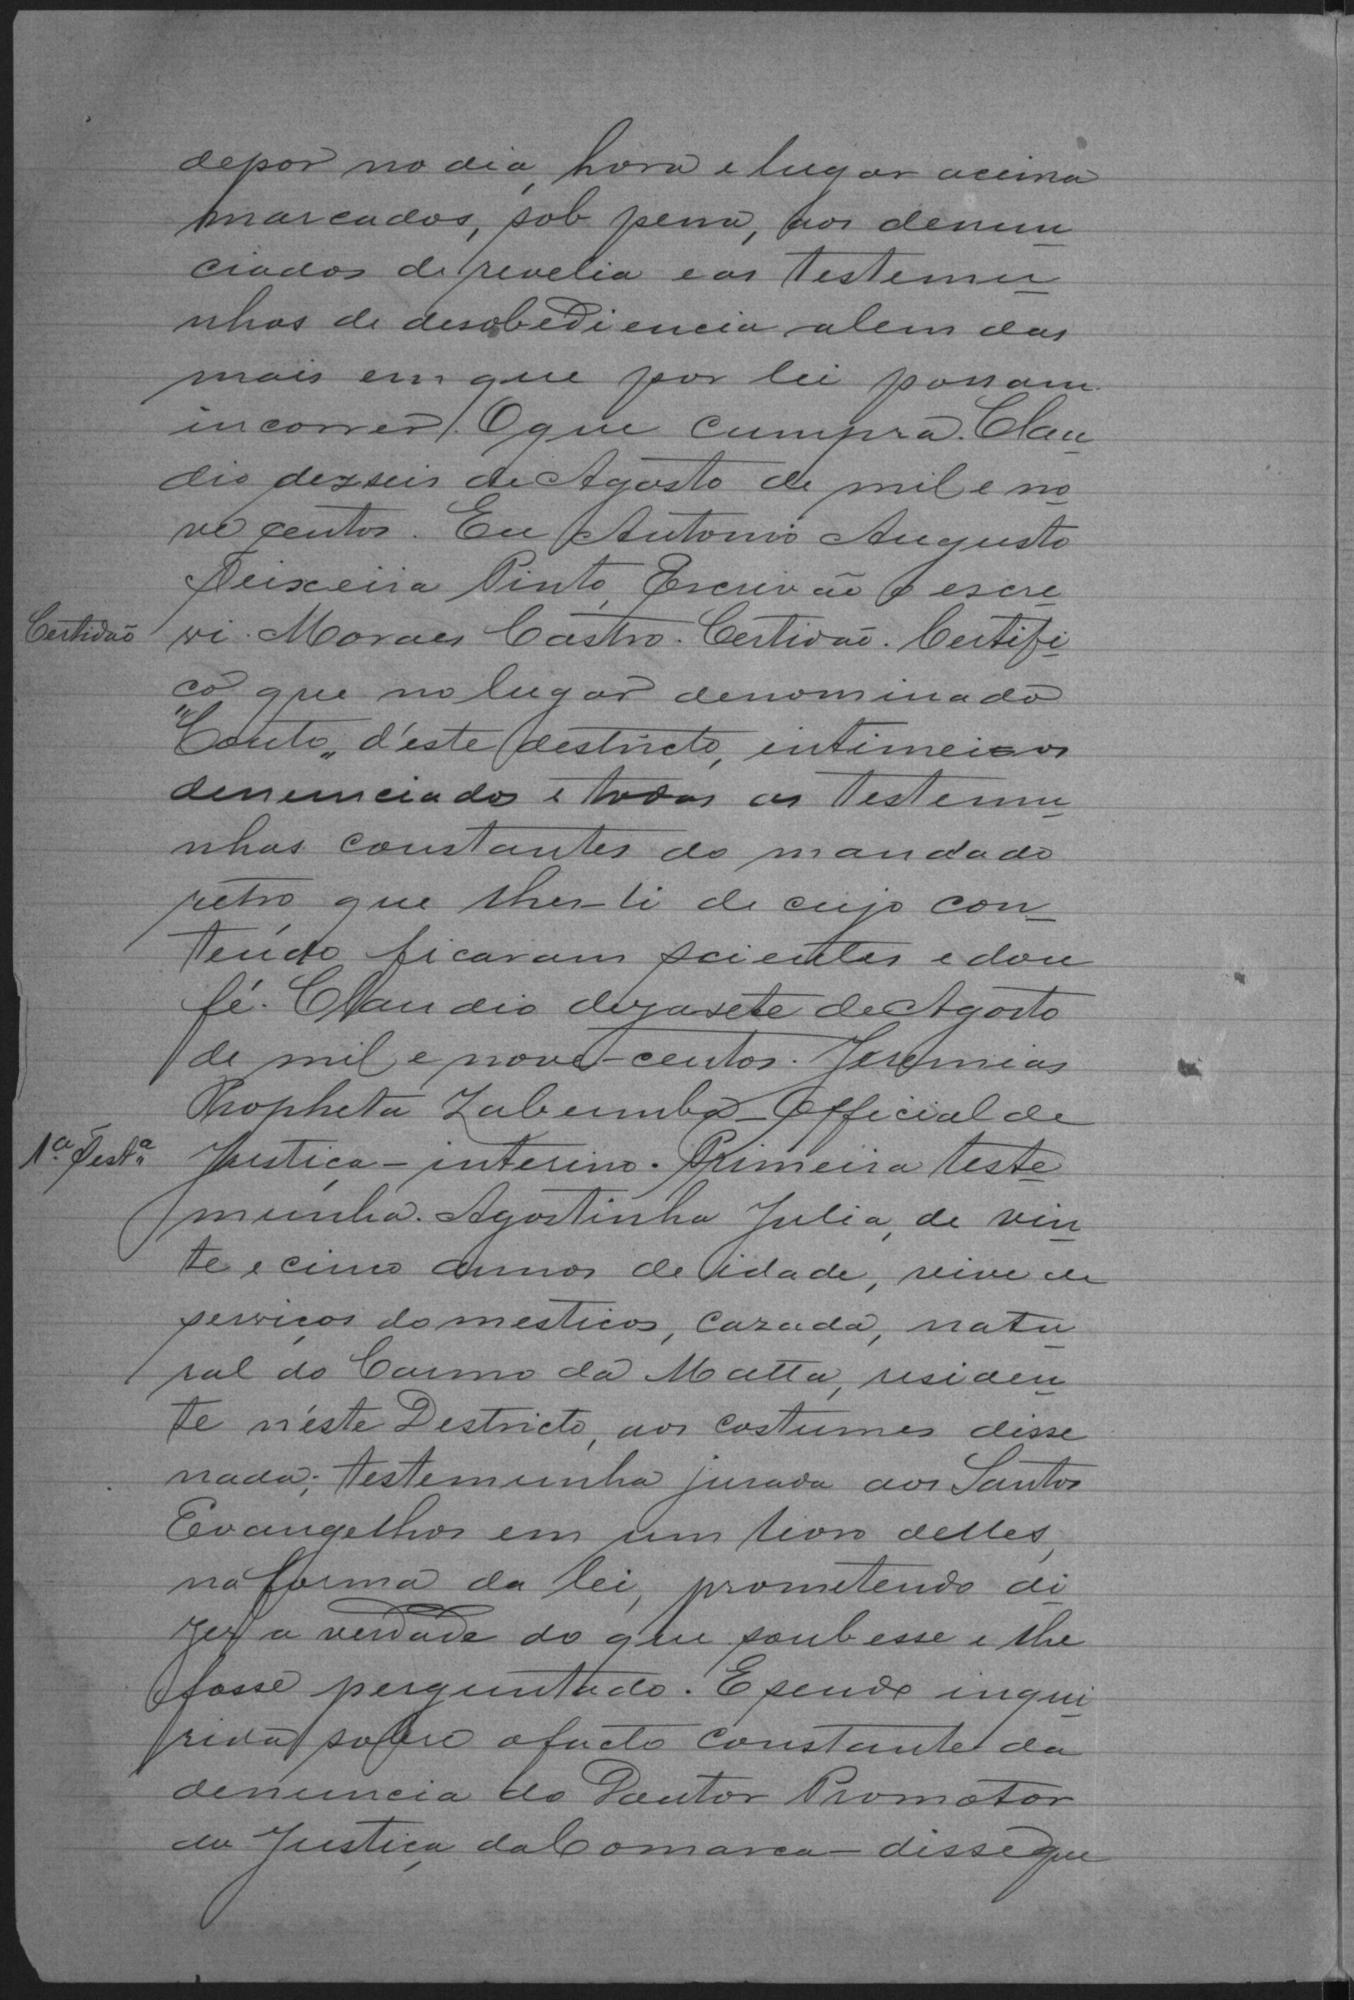 depor no dia, hora e lugar acima
marcados, sob pena, aos denun
ciados de revelia e as testemu
nhas de desobediencia alem das
mais em que por lei possam
incorrer. O que cumpra. Clau
dio dezseis de Agosto de mil e no
ve centos. Eu Antonio Augusto
Teixeira Pinto, Escrivão o escre
Certidão vi. Moraes Castro. Certidão. Certifi
co que no lugar denominado
"Couto„ d'este destricto, intimei os
denunciados e todas as testemu
nhas constantes do mandado
retro que lhes-li de cujo con-
teúdo ficaram scientes e dou
fé. Claudio dezasete de Agosto
de mil e nove-centos. Jeremias
Propheta Zabumba - Official de
1ª Testª Justiça - interino. Primeira teste
munha. Agostinha Julia, de vin
te e cinco annos de idade, vive de
serviços domesticos, cazada, natu
ral do Carmo da Matta, residen
te n'este Destricto, aos costumes disse
nada; testemunha jurada aos Santos
Evangelhos em um livro delles,
na forma da lei, prometendo di
zer a verdade do que soubesse e lhe
fosse perguntado. E sendo inqui
rida sobre o facto constante da
denuncia do Doutor Promotor
da Justiça da Comarca - disse que